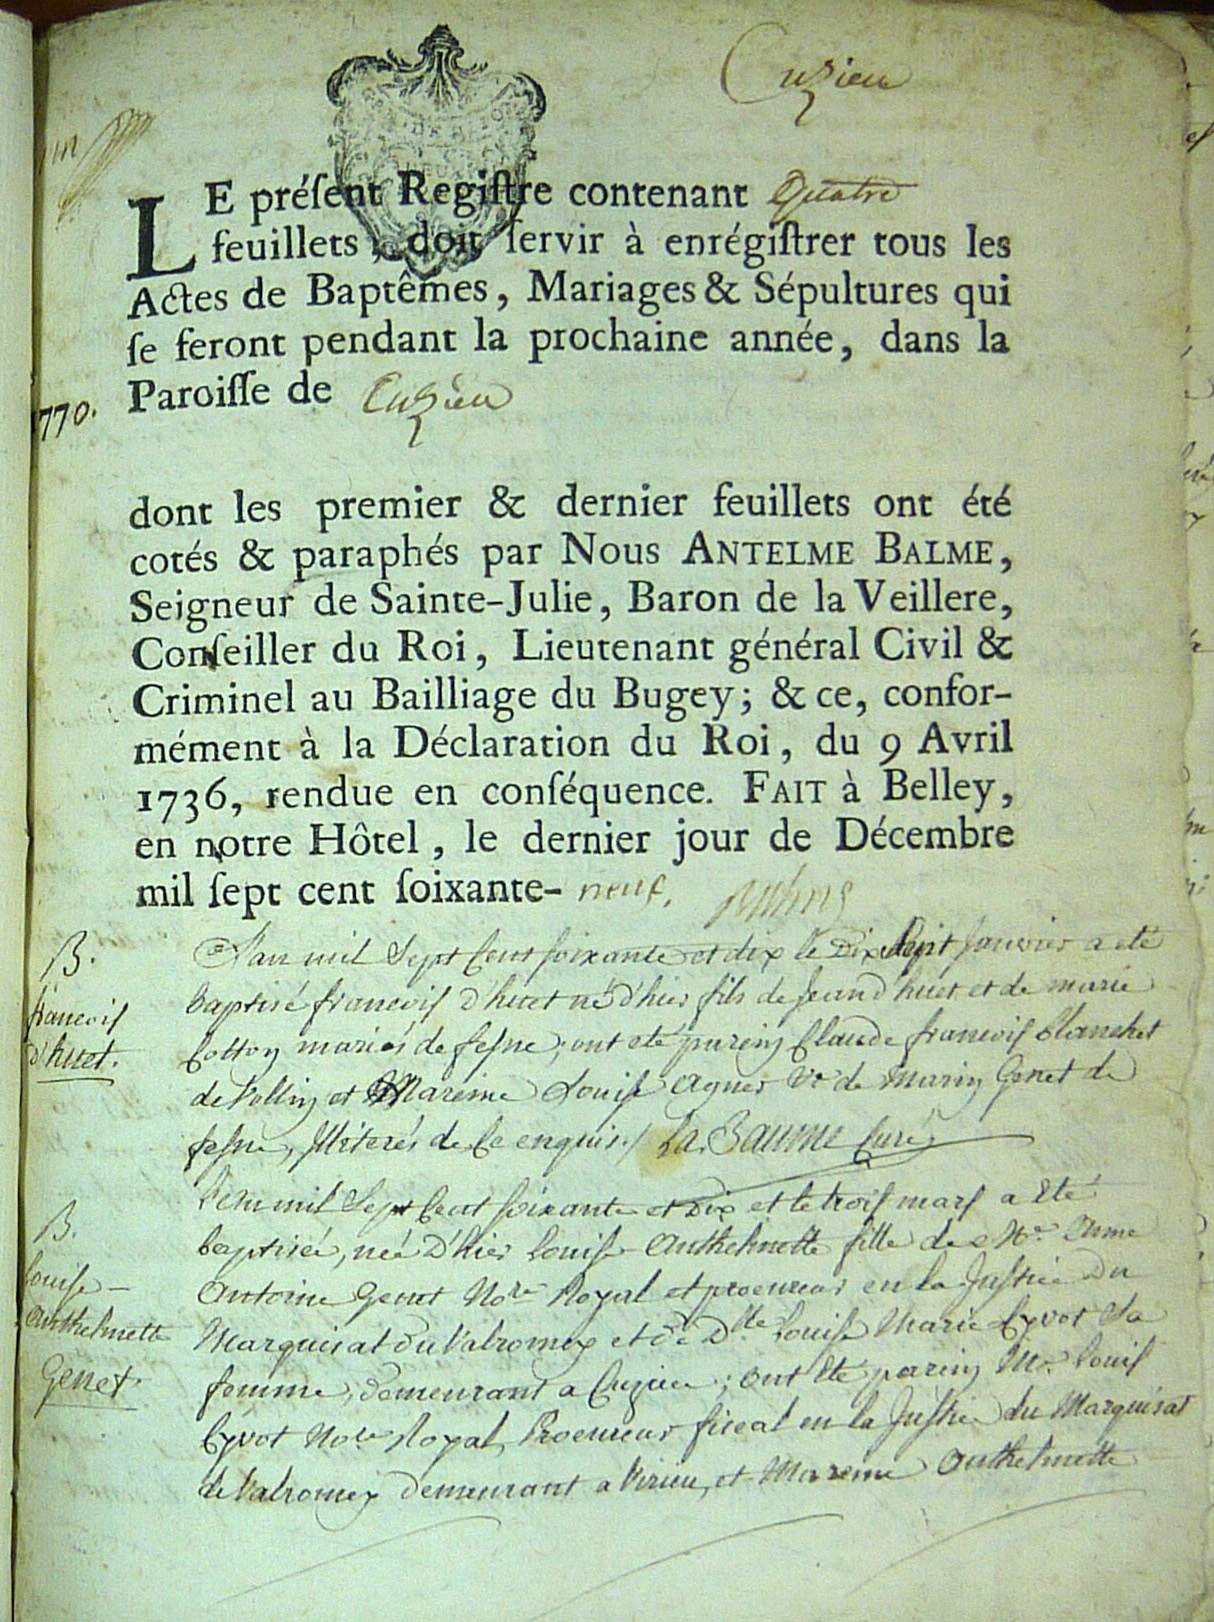 Cuzieu
LE préſent Regiſtre contenant Quatre
feuillets, doit ſervir à enrégiſtrer tous les
Actes de Baptêmes, Mariages & Sépultures qui
ſe feront pendant la prochaine année, dans la
Paroiſſe de Cuzieu
1770.
dont les premier & dernier feuillets ont été
cotés & paraphés par Nous ANTELME BALME,
Seigneur de Sainte-Julie, Baron de la Veillere,
Conſeiller du Roi, Lieutenant général Civil &
Criminel au Bailliage du Bugey; & ce, confor-
mément à la Déclaration du Roi, du 9 Avril
1736, rendue en conſéquence. FAIT à Belley,
en notre Hôtel, le dernier jour de Décembre
mil ſept cent ſoixante- neuf. Balme
B.
francois
d'huet.
L'an mil Sept Cent soixante et dix le Dix Sept Janvier a eté
baptisé francois d'huet né d'hier fils de Jean d'huet et de marie
Cotton mariés de ; ont eté parein Claude francois blanchet
de Vollin et Mareine Louise Ve de Marin Genet de
, Illiterés de Ce enquis./ La Baume Curé
B.
louise
Anthelmette
Genet.
L'an mil Sept Cent soixante et Dix et le trois mars a Eté
baptisée, née D'hier Louise Anthelmette fille de Me Anme
Antoine Genet Nore Royal et procureur en la Justice Du
Marquisat du Valromey et de Dlle Louise Marie Cyvot Sa
femme, demeurant a Cuzieu; ont Eté parein Mr. Louis
Cyvot Nore Royal, Procureur fiscal en la Justice du Marquisat
de Valromey Demeurant a Virieu, et Mareine Anthelmette